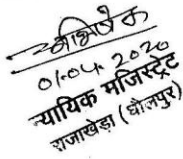 अभिषेक
01.04.2020
न्यायिक मजिस्ट्रेट
राजाखेड़ा (धौलपुर)